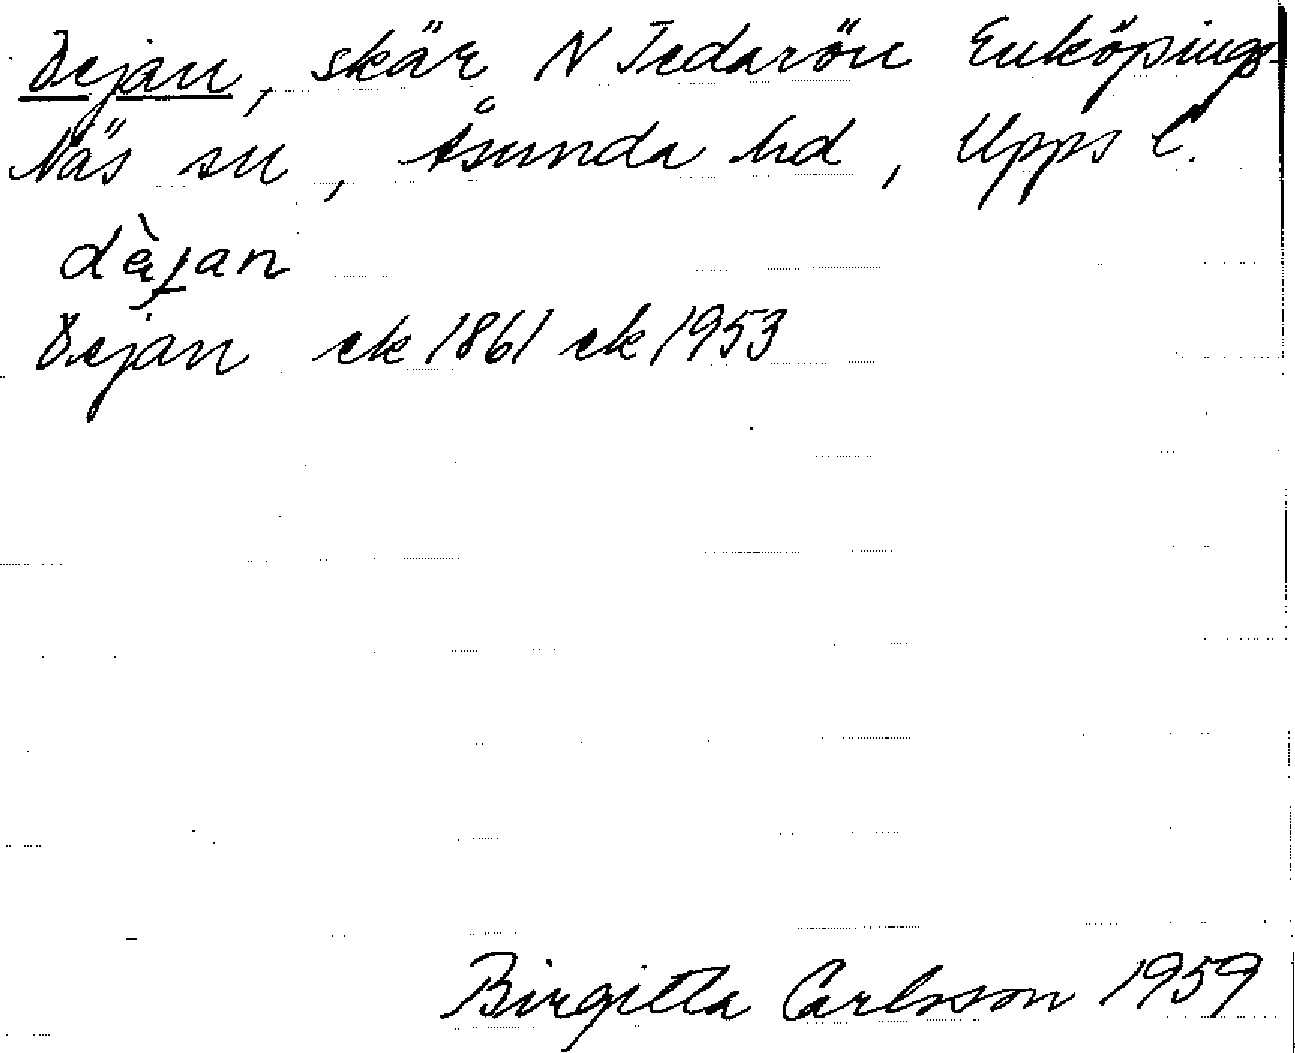 Dejan, skär N Tedarön Enköpings-
Näs sn, Åsunda hd, Upps l.
dèjan
Dejan ek 1861 ek 1953
Birgitta Carlsson 1959